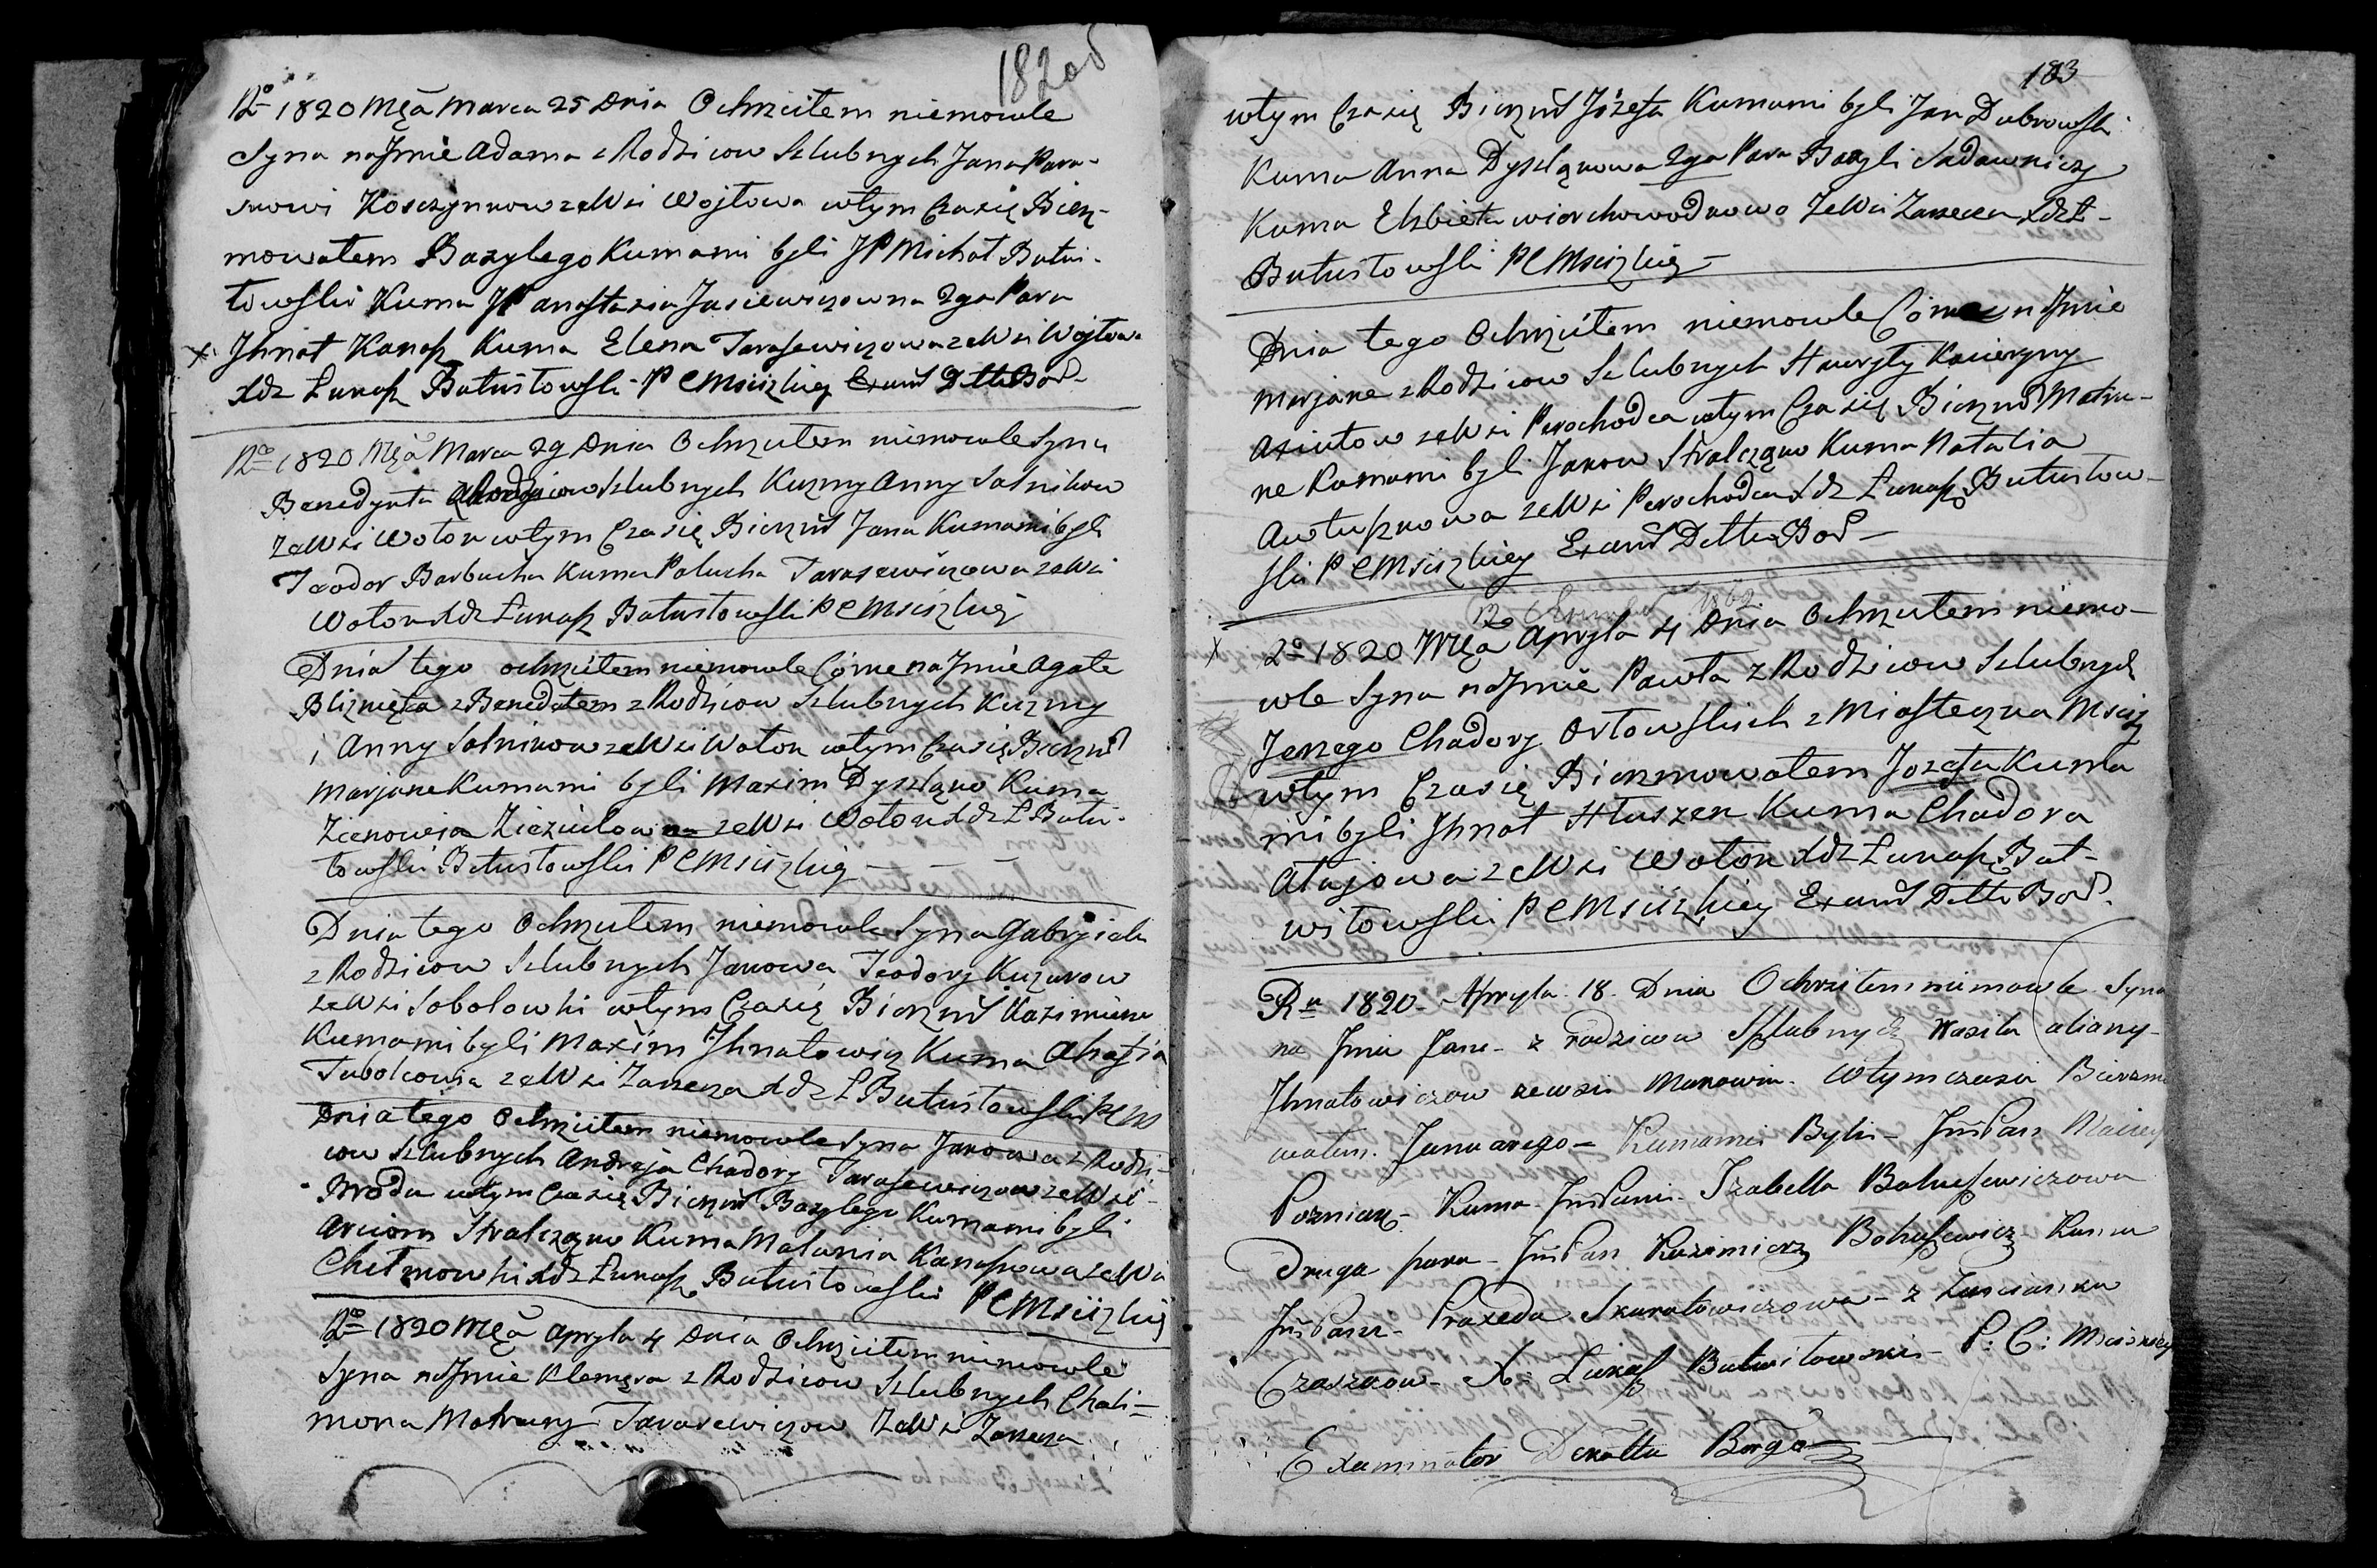 1820
Ro 1820 Mca Marca 25 Dnia Ochrzciłem niemowle
Syna na Jmie Adama z Rodzicow Szlubnych Jana Para-
skowi Koszczynkow ze Wsi Wojtowa wtym Czasię Bierz-
mowałem Bazylego Kumami byli JP Michał Butwi-
towski Kuma JP Anastazia Jasiewiczowna 2ga Para
x Jhnat Kanasz Kuma Elena Tarasewiczowa ze Wsi Wojtowa
Xdz Łukasz Butwiłowski P C Msciżkiey Exam Dektu Bor
Ro 1820 Mca Marca 29 Dnia Ochrzciłem niemowle Syna
Benedykta z Rodzicow Szlubnych Kuzmy Anny Sotnikow
ze Wsi Woton wtym Czasię Bierzmł Jana Kumami byli
Teodor Barbucha Kuma Polucha Tarasewiczowa ze Wsi
Woton Xdz Łukasz Butwiłowski P C Msciżkiey
Dnia tego ochrzciłem niemowle Córke na Jmie Agate
Bliznięta z Benedyktem z Rodzicow Szlubnych Kuzmy
i Anny Sotnikow ze Wsi Woton wtym Czasię Bierzmł
Marjane Kumami byli Maxim Dyszląnk Kuma
Zienowija Zieziulowna ze Wsi Woton Xdz Ł Butwi-
towski Butwiłowski P C Msciżkiey
Dnia tego Ochrzciłem niemowle Syna Gabryiela
z Rodzicow Szlubnych Jakowa Teodory Kuzurow
ze Wsi Sobolowki wtym Czasię Bierzmł Kazimierza
Kumami byli Maxim Jhnatowicz Kuma Ahafia
Tubolcowa ze Wsi Zarzecza Xdz Ł Butwiłowski P C M
Dnia tego Ochrzciłem niemowle Syna Jakowa z Rodzi-
cow Szlubnych Andreja Chadory Tarasewiczow ze Wsi
Broda wtym Czasię Bierzmł Bazylego Kumami byli
Arciom Stralcząnk Kuma Malania Kanaszowa ze Wsi
Chełmowki Xdz Łukasz Butwiłowski P C Msciżkiey
Ro 1820 Mca Apryla 4 Dnia Ochrzciłem niemowle
Syna na Jmie Klemęsa z Rodzicow Szlubnych Chali-
mona Matruny Tarasewiczow ze Wsi Zarzecza
183
wtym Czasię Bierzmł Józefa Kumami byli Jan Dubrowski
Kuma Anna Dyszląnkowa 2ga Para Bazyli Sadawniczy
Kuma Elzbieta Wierchowodkowa ze Wsi Zarzecza Xdz Ł
Butwiłowski P C Msciżkiey
Dnia tego Ochrzciłem niemowle Córke na Jmie
Marjane z Rodzicow Szlubnych Hawryły Kacieryny
Axiutow ze Wsi Perechodca wtym Czasię Bierzmł Matru-
ne Kumami byli Jakow Stralcząnk Kuma Natalia
ze Wsi Perechodca Xdz Łukasz Butwiłow-
ski P C Msciżkiey Exam Dektu Bor
x Ro 1820 Mca Apryla 4 Dnia Ochrzciłem niemo-
wle Syna na Jmie Pawła z Rodzicow Szlubnych
Jerzego Chadory Orłowskich z Miasteczka Msciż
wtym Czasię Bierzmowałem Jozefa Kuma
mi byli Jhnat Hłuszen Kuma Chadora
Ałajowa ze Wsi Woton Xdz Łukasz But-
wiłowski P C Msciżkiey Exam Dektu Bor
Ru 1820 Apryla 18 Dnia Ochrzciłem niemowle Syna
na Jmie Jana z rodzicow Szlubnych Wasila Uliany
Jhnatowiczow ze wsi Makowia. Wtym czasie Bierzmo
wałem Januarego - Kumami Byli - Jm Pan Maciey
Pozniak - Kuma Jm Pani Izabella Bohuszewiczowa
Druga para - Jm Pan Kazimierz Bohuszewicz - Kuma
Jm Pani Praxeda Skuratowiczowa - z Zascianka
Czaszkow - X. Łukasz Butwiłowski - P: C: Msciżskiey
Examinator Dekattu Borys